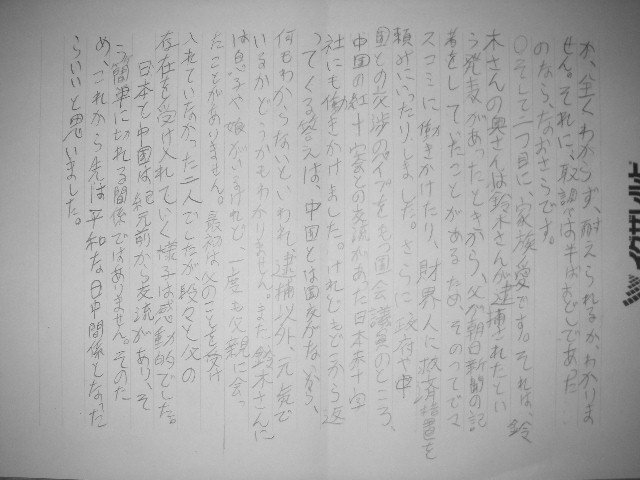 か、全くわからず、耐えられるかわかりま
せん。それに、取調べは半ばおどしであった
のなら、なおさらです。
○そして二つ目に、家族愛です。それは、鈴
木さんの奥さんは鈴木さんが逮捕されたとい
う発表があったときから、父が朝日新聞の記
者をしていたことがあるため、そのつてでマ
スコミに働きかけたり、財界人に救済措置を
頼みにいったりしました。さらに政府や中
国との交渉のパイプをもつ国会議員のところ、
中国の紅十字会との交流があった日本赤十字
社にも働きかけました。けれどもどこから返
ってくる答えは、中国とは国交がないから、
何もわからないといわれ、逮捕以外、元気で
いるかどうかもわかりません。また、鈴木さんに
は息子や娘がいるけれど、一度も父親に会っ
たことがありません。最初は父のことを受け
入れていなかった二人でしたが、段々と父の
存在を受け入れていく様子は感動的でした。
日本と中国は紀元前から交流があり、そ
う簡単に切れる関係ではありません。そのた
め、これから先は平和な日中関係となった
らいいと思いました。